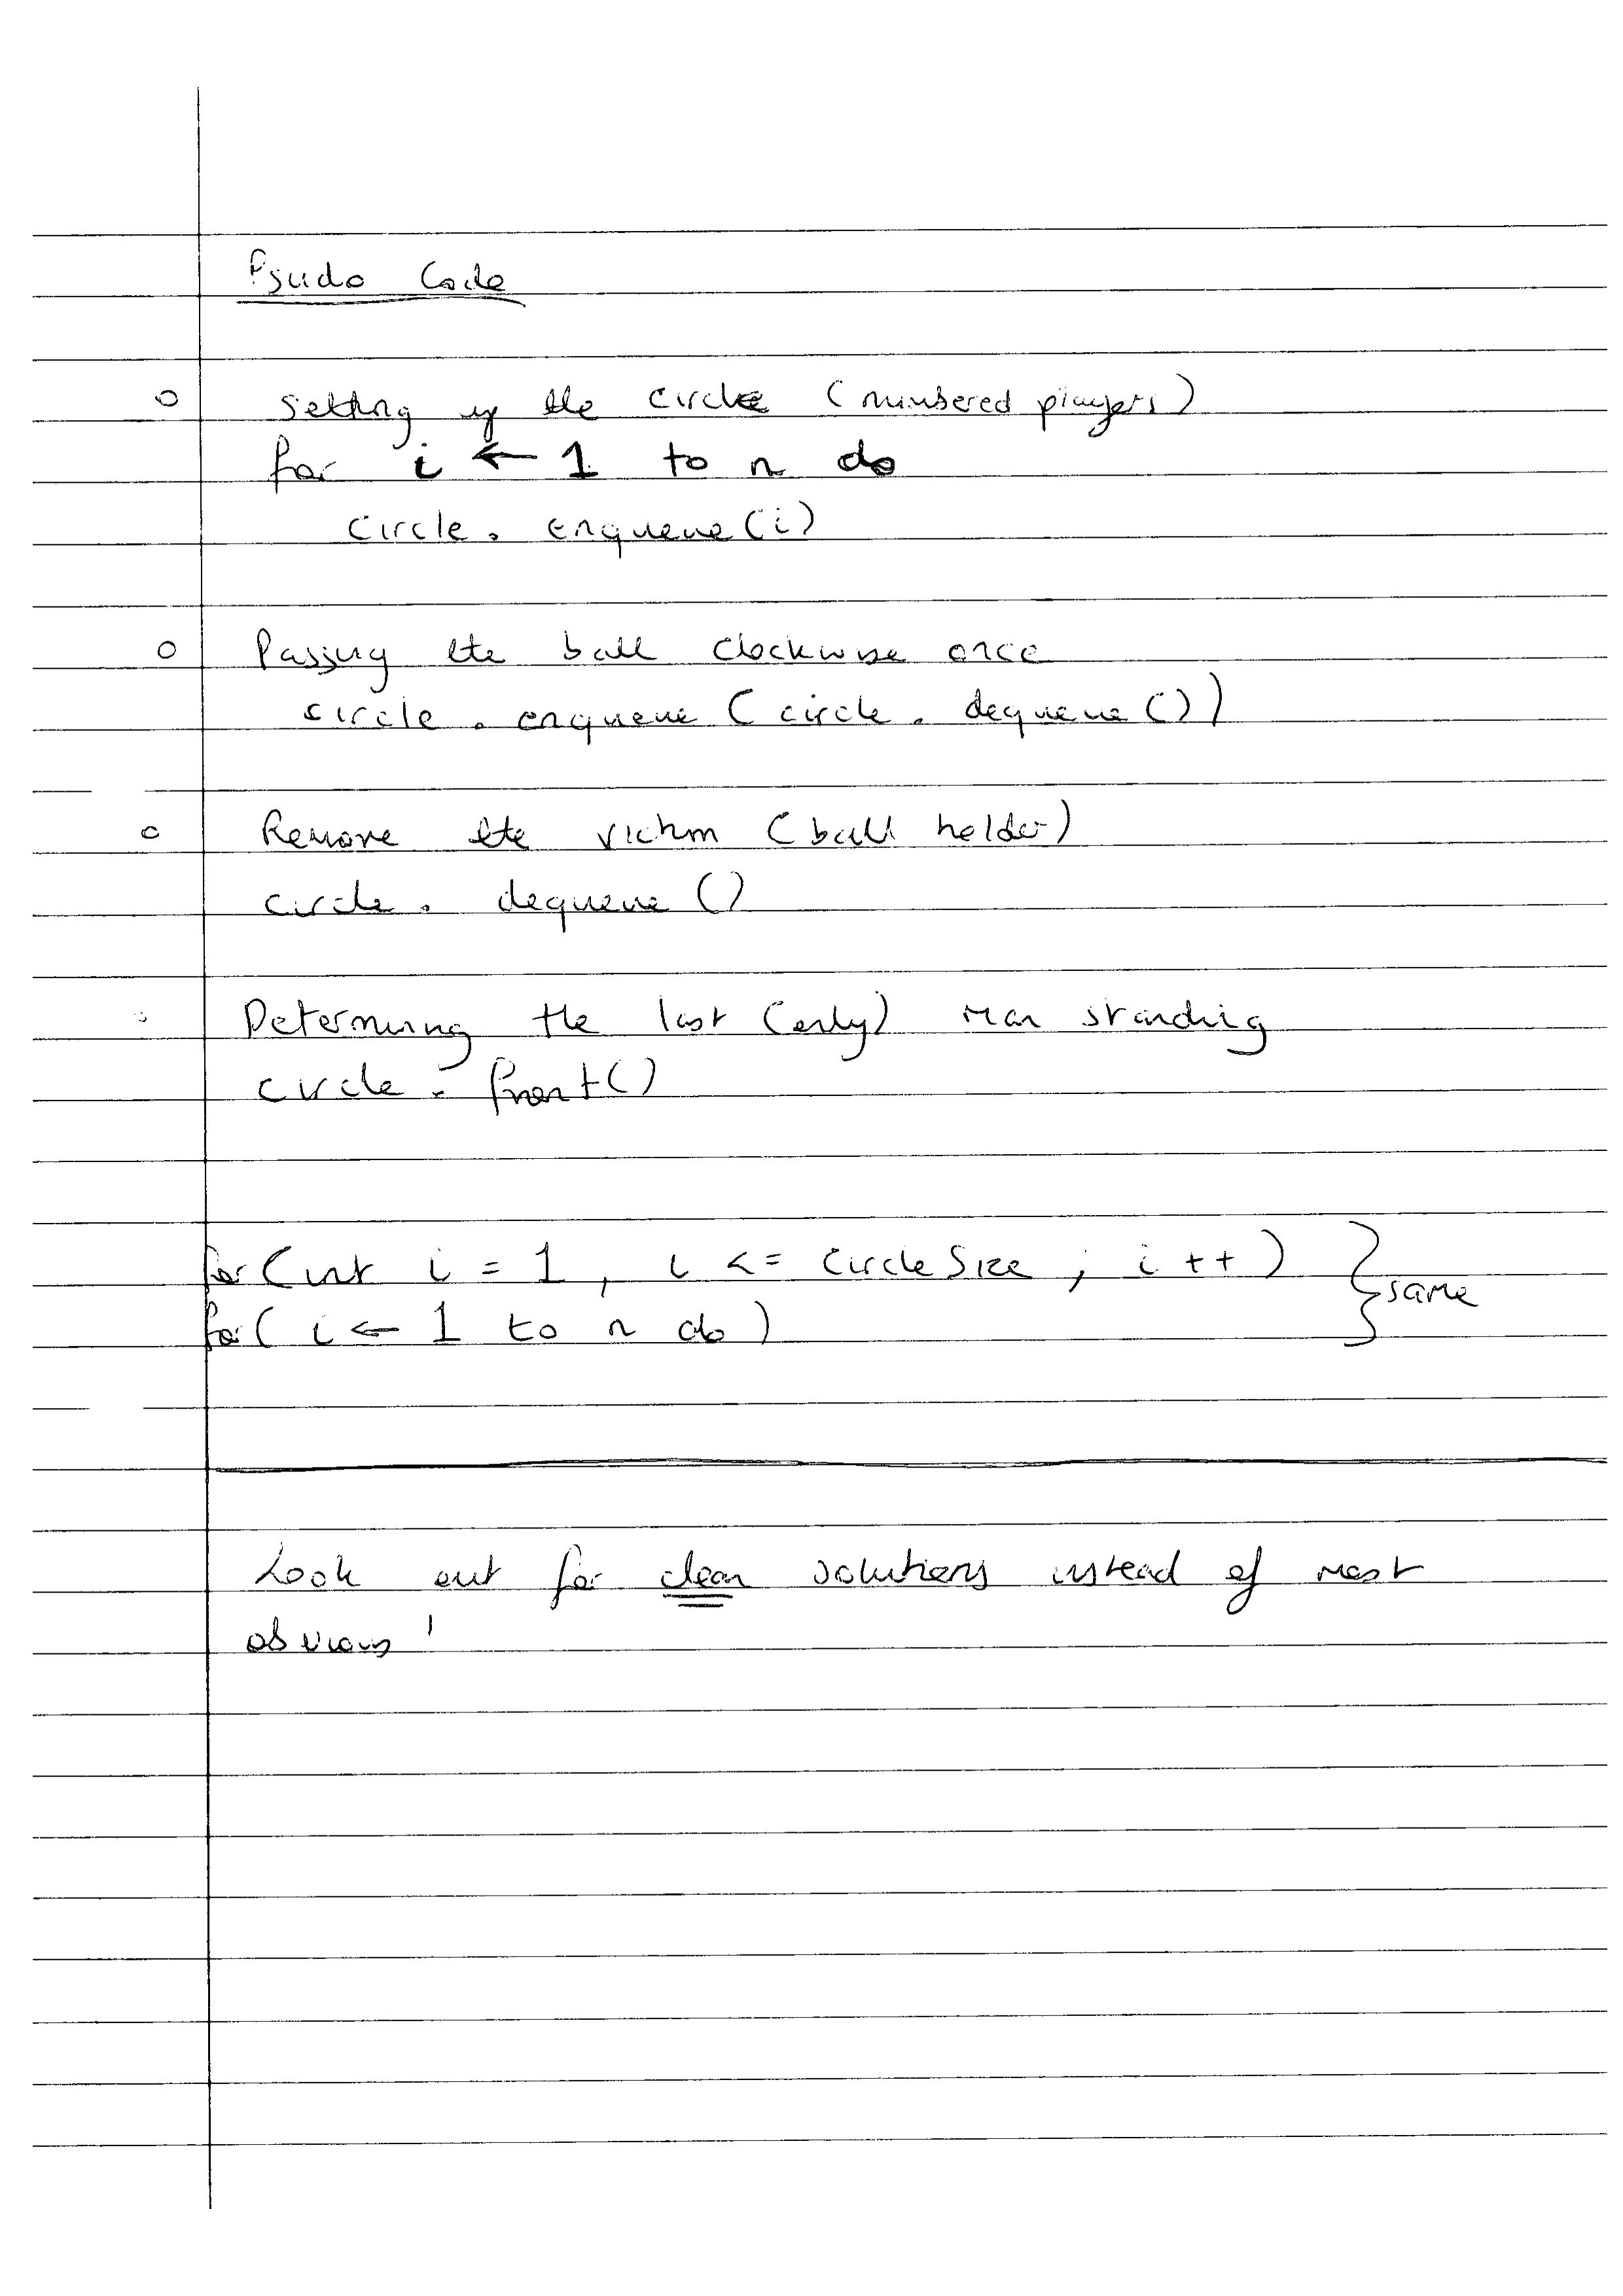 Psudo Code
Setting up the circle (numbered players)
for i ← 1 to n do
circle. enqueue (i)
Passing the ball clockwise once
circle. enqueue ( circle. dequeue ())
Remove the victim (ball holder)
circle. dequeue ()
Determining the last (only) man standing
circle. front()
for (int i = 1, i <= CircleSize ; i ++ ) } same
for ( i ← 1 to n do )
Look out for clean solutions instead of most
obvious !